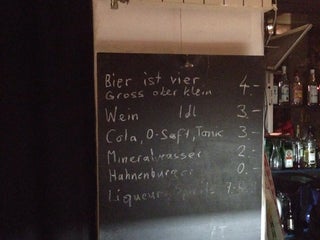 Bier ist vier 4.-
Gross oder klein
Wein 1dl 3.-
Cola, O-Saft, Tonic 3.-
Mineralwasser 2.-
Hahnenburger 0.-
Liqueur